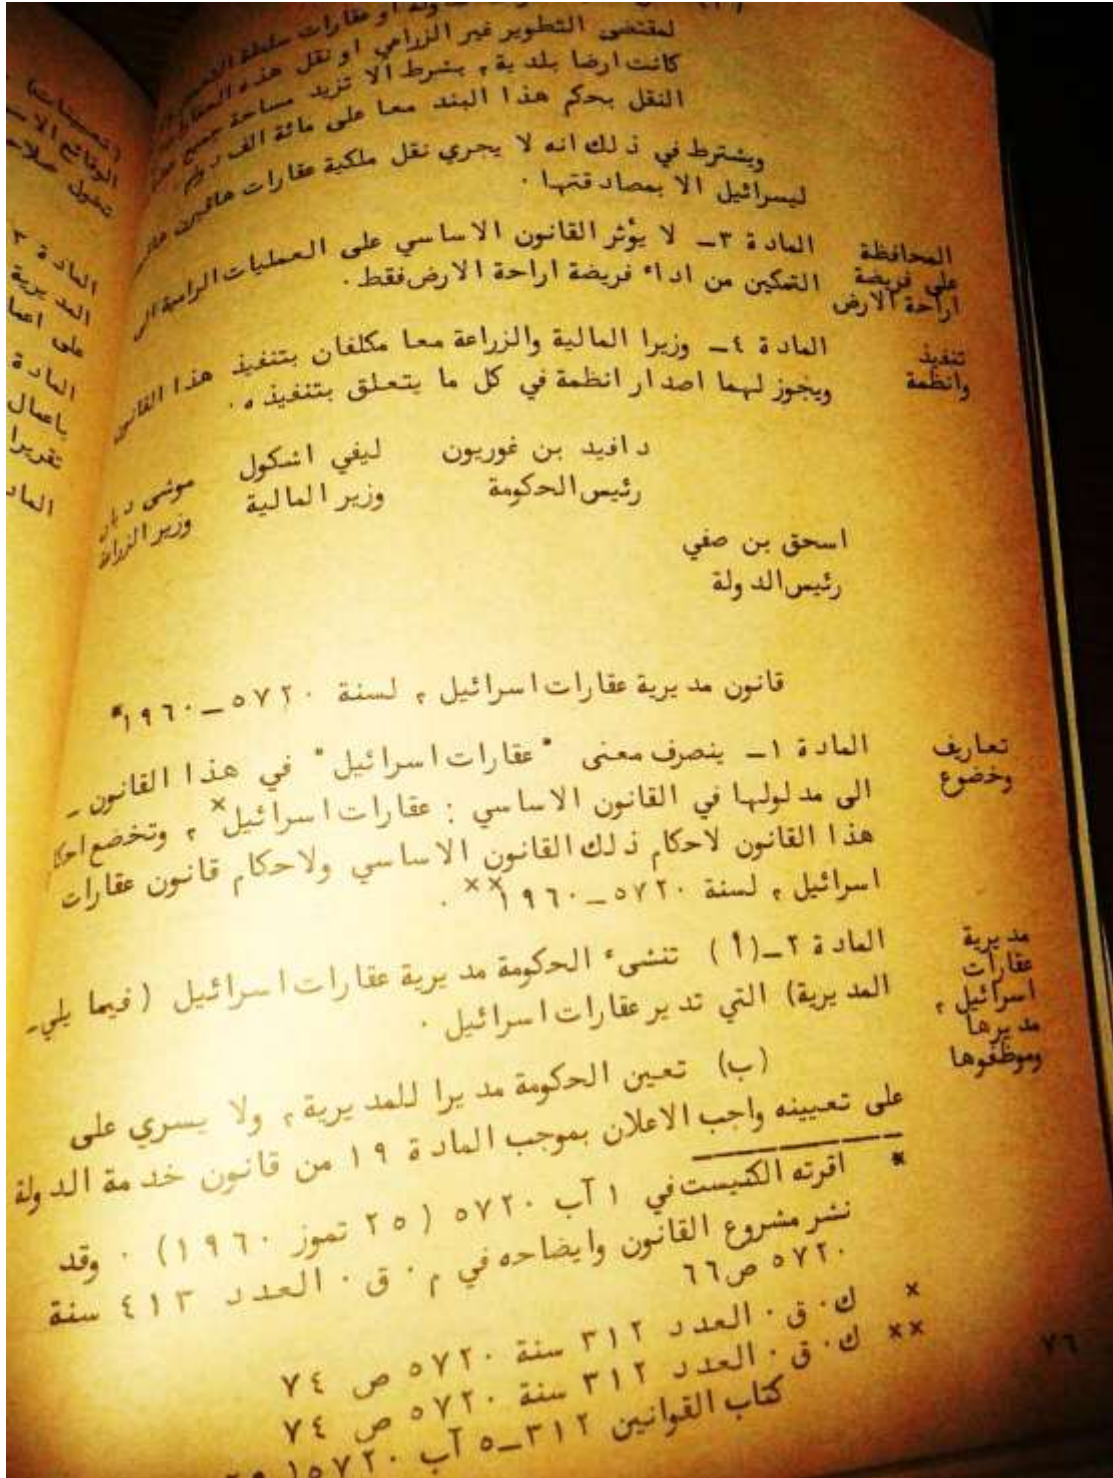 او عقارات سلطة
لمقتضى التطوير غير الزراعي او نقل هذه
كانت ارضا بلدية ، بشرط الا تزيد مساحة جميع
النقل بحكم هذا البند معا على مائة الف دونم .
ويشترط في ذلك انه لا يجري نقل ملكية عقارات
ليسرائيل الا بمصادقتها .
المحافظة
على فريضة
اراحة الارض
المادة ٣ــ لا يؤثر القانون الاساسي على العمليات الرامية الى
التمكين من اداء فريضة اراحة الارض فقط .
تنفيذ
وانظمة
المادة ٤ــ وزيرا المالية والزراعة معا مكلفان بتنفيذ هذا القانون
ويجوز لهما اصدار انظمة في كل ما يتعلق بتنفيذه .
دافيد بن غوريون ليفي اشكول موشى ديان
رئيس الحكومة وزير المالية وزير الزراعة
اسحق بن صفي
رئيس الدولة
قانون مديرية عقارات اسرائيل ، لسنة ٥٧٢٠ــ١٩٦٠*
تعاريف
وخضوع
المادة ١ــ ينصرف معنى "عقارات اسرائيل" في هذا القانون ــ
الى مدلولها في القانون الاساسي : عقارات اسرائيل× ، وتخضع
هذا القانون لاحكام ذلك القانون الاساسي ولاحكام قانون عقارات
اسرائيل ، لسنة ٥٧٢٠ــ١٩٦٠×× .
مديرية
عقارات
اسرائيل ،
مديرها
وموظفوها
المادة ٢ــ(أ) تنشىء الحكومة مديرية عقارات اسرائيل (فيما يلي ــ
المديرية) التي تدير عقارات اسرائيل .
(ب) تعين الحكومة مديرا للمديرية ، ولا يسري على
على تعيينه واجب الاعلان بموجب المادة ١٩ من قانون خدمة الدولة
* اقرته الكنيست في ١ آب ٥٧٢٠ (٢٥ تموز ١٩٦٠) . وقد
نشر مشروع القانون وايضاحه في م . ق . العدد ٤١٣ سنة
٥٧٢٠ ص ٦٦
× ك . ق . العدد ٣١٢ سنة ٥٧٢٠ ص ٧٤
×× ك . ق . العدد ٣١٢ سنة ٥٧٢٠ ص ٧٤
كتاب القوانين ٣١٢ــ٥ آب ٥٧٢٠
٧٦
المادة ٣
المديرية
على
المادة
باعمال
تقريرا